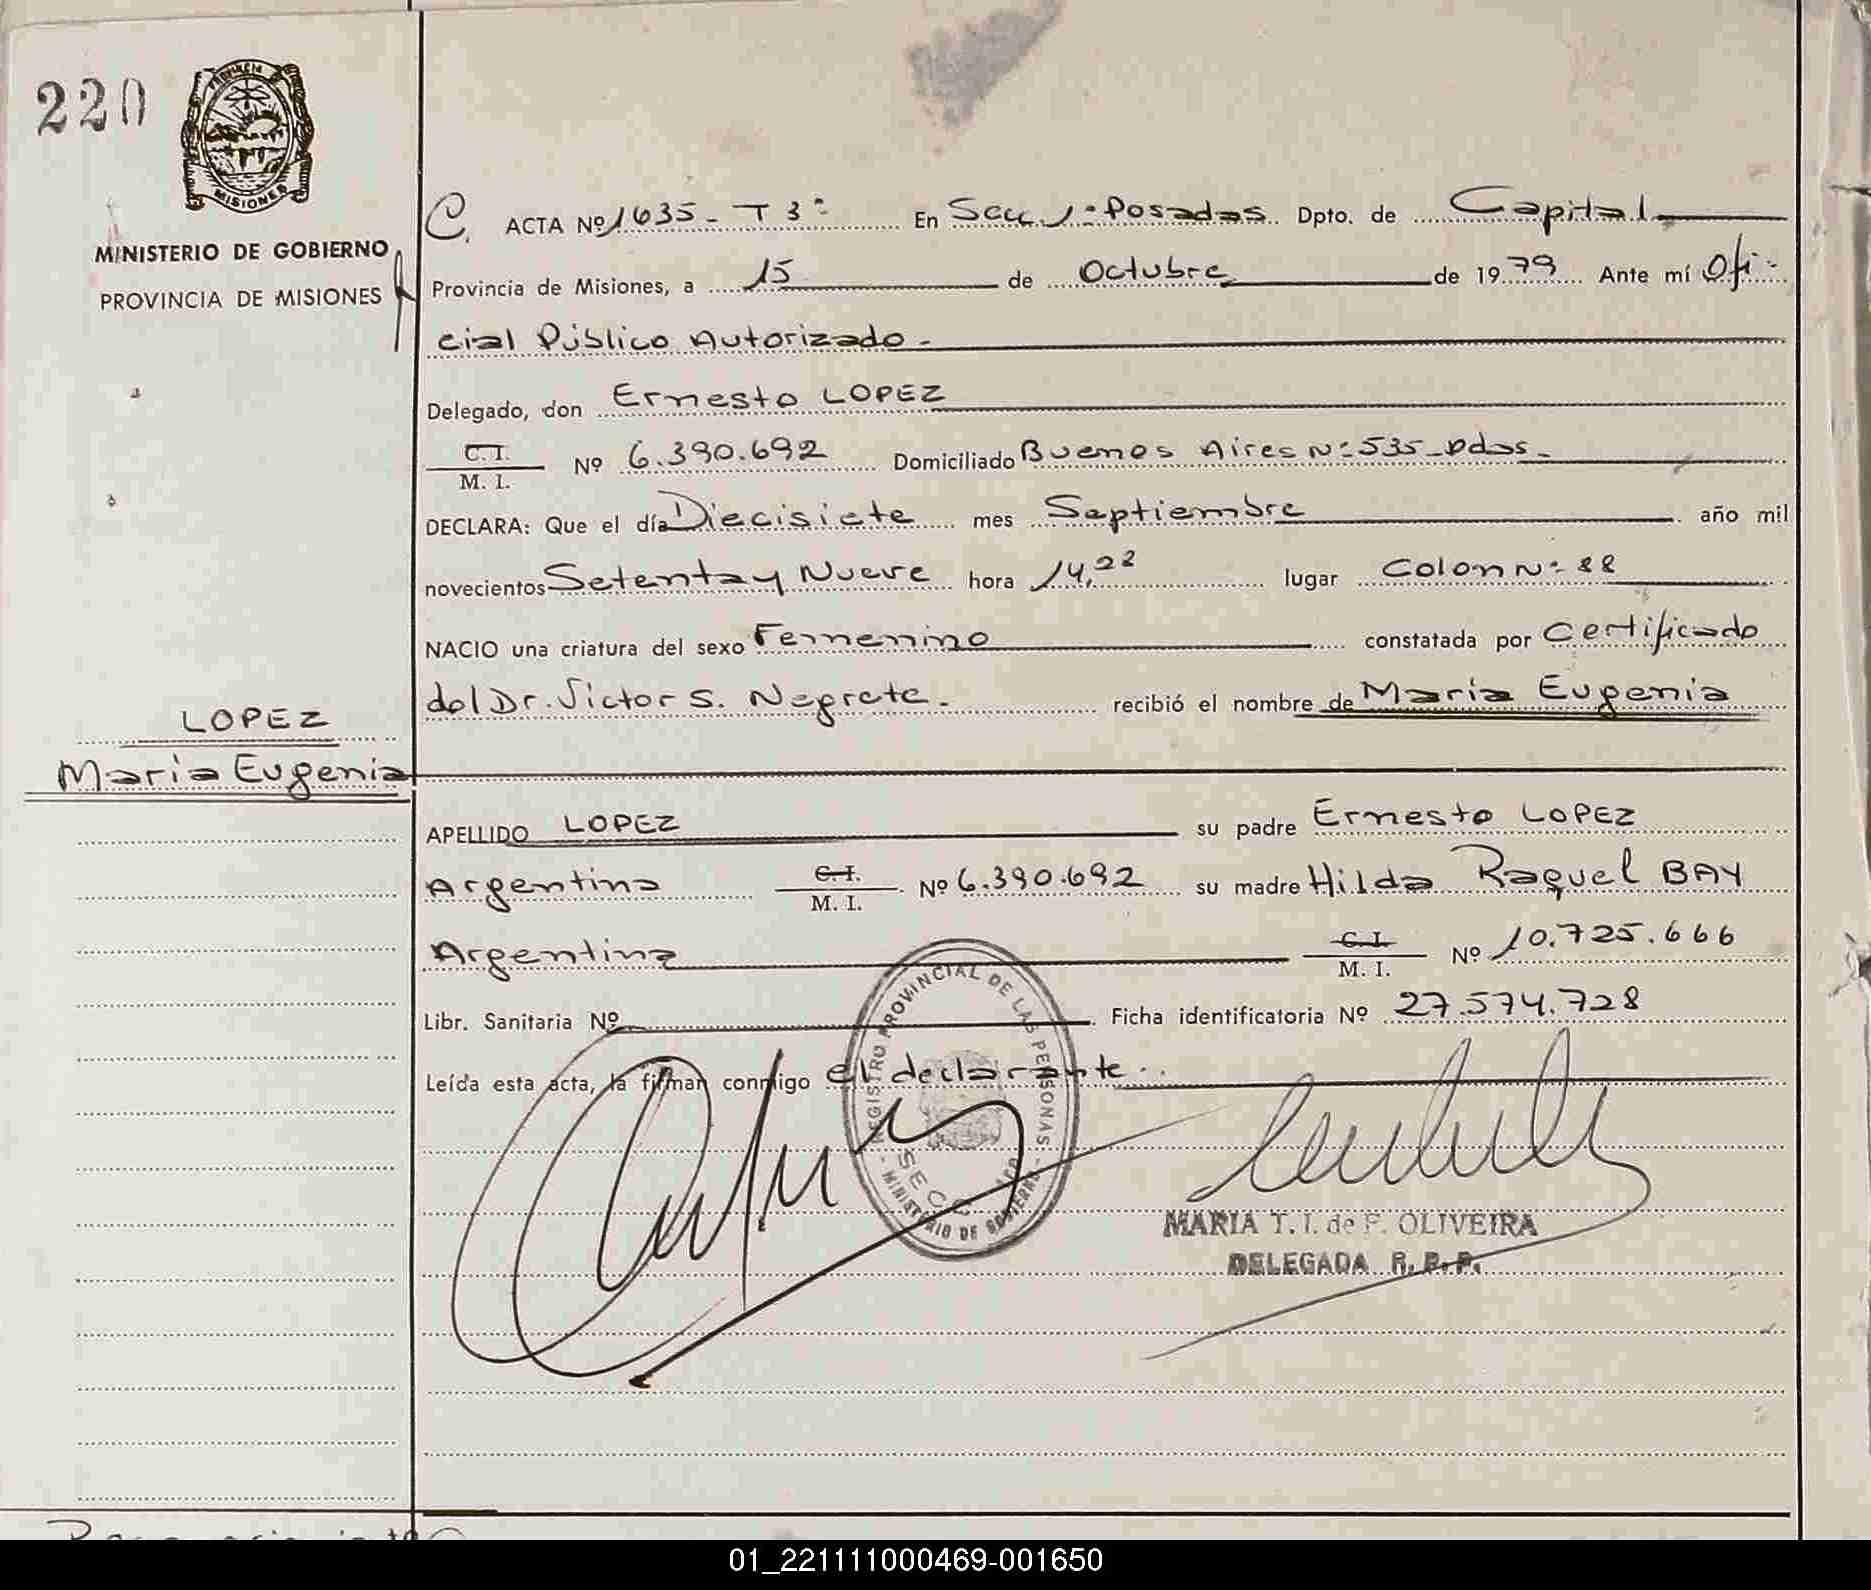 220
PROVINCIA
MISIONES
MINISTERIO DE GOBIERNO
PROVINCIA DE MISIONES
C. ACTA Nº 1635 - T 3º En Secc 1º Posadas Dpto. de Capital
Provincia de Misiones, a 15 de Octubre de 19 79 Ante mí Ofi-
cial Público Autorizado -
Delegado, don Ernesto LOPEZ
C. I. M. I. Nº 6.390.692 Domiciliado Buenos Aires Nº 535 - Pdas -
DECLARA: Que el día Diecisiete mes Septiembre año mil
novecientos Setenta y Nueve hora 14,22 lugar Colon Nº 88
NACIO una criatura del sexo Femenino constatada por Certificado
del Dr. Victor S. Negrete. recibió el nombre de María Eugenia
LOPEZ
María Eugenia
APELLIDO LOPEZ su padre Ernesto LOPEZ
Argentina C. I. M. I. Nº 6.390.692 su madre Hilda Raquel BAY
Argentina C. I. M. I. Nº 10.725.666
Libr. Sanitaria Nº Ficha identificatoria Nº 27.574.728
Leída esta acta, la firman conmigo el declarante..
REGISTRO PROVINCIAL DE LAS PERSONAS
SECC
- MINISTERIO DE GOBIERNO -
MARIA T. I. de F. OLIVEIRA
DELEGADA R. P. P.
01_221111000469-001650